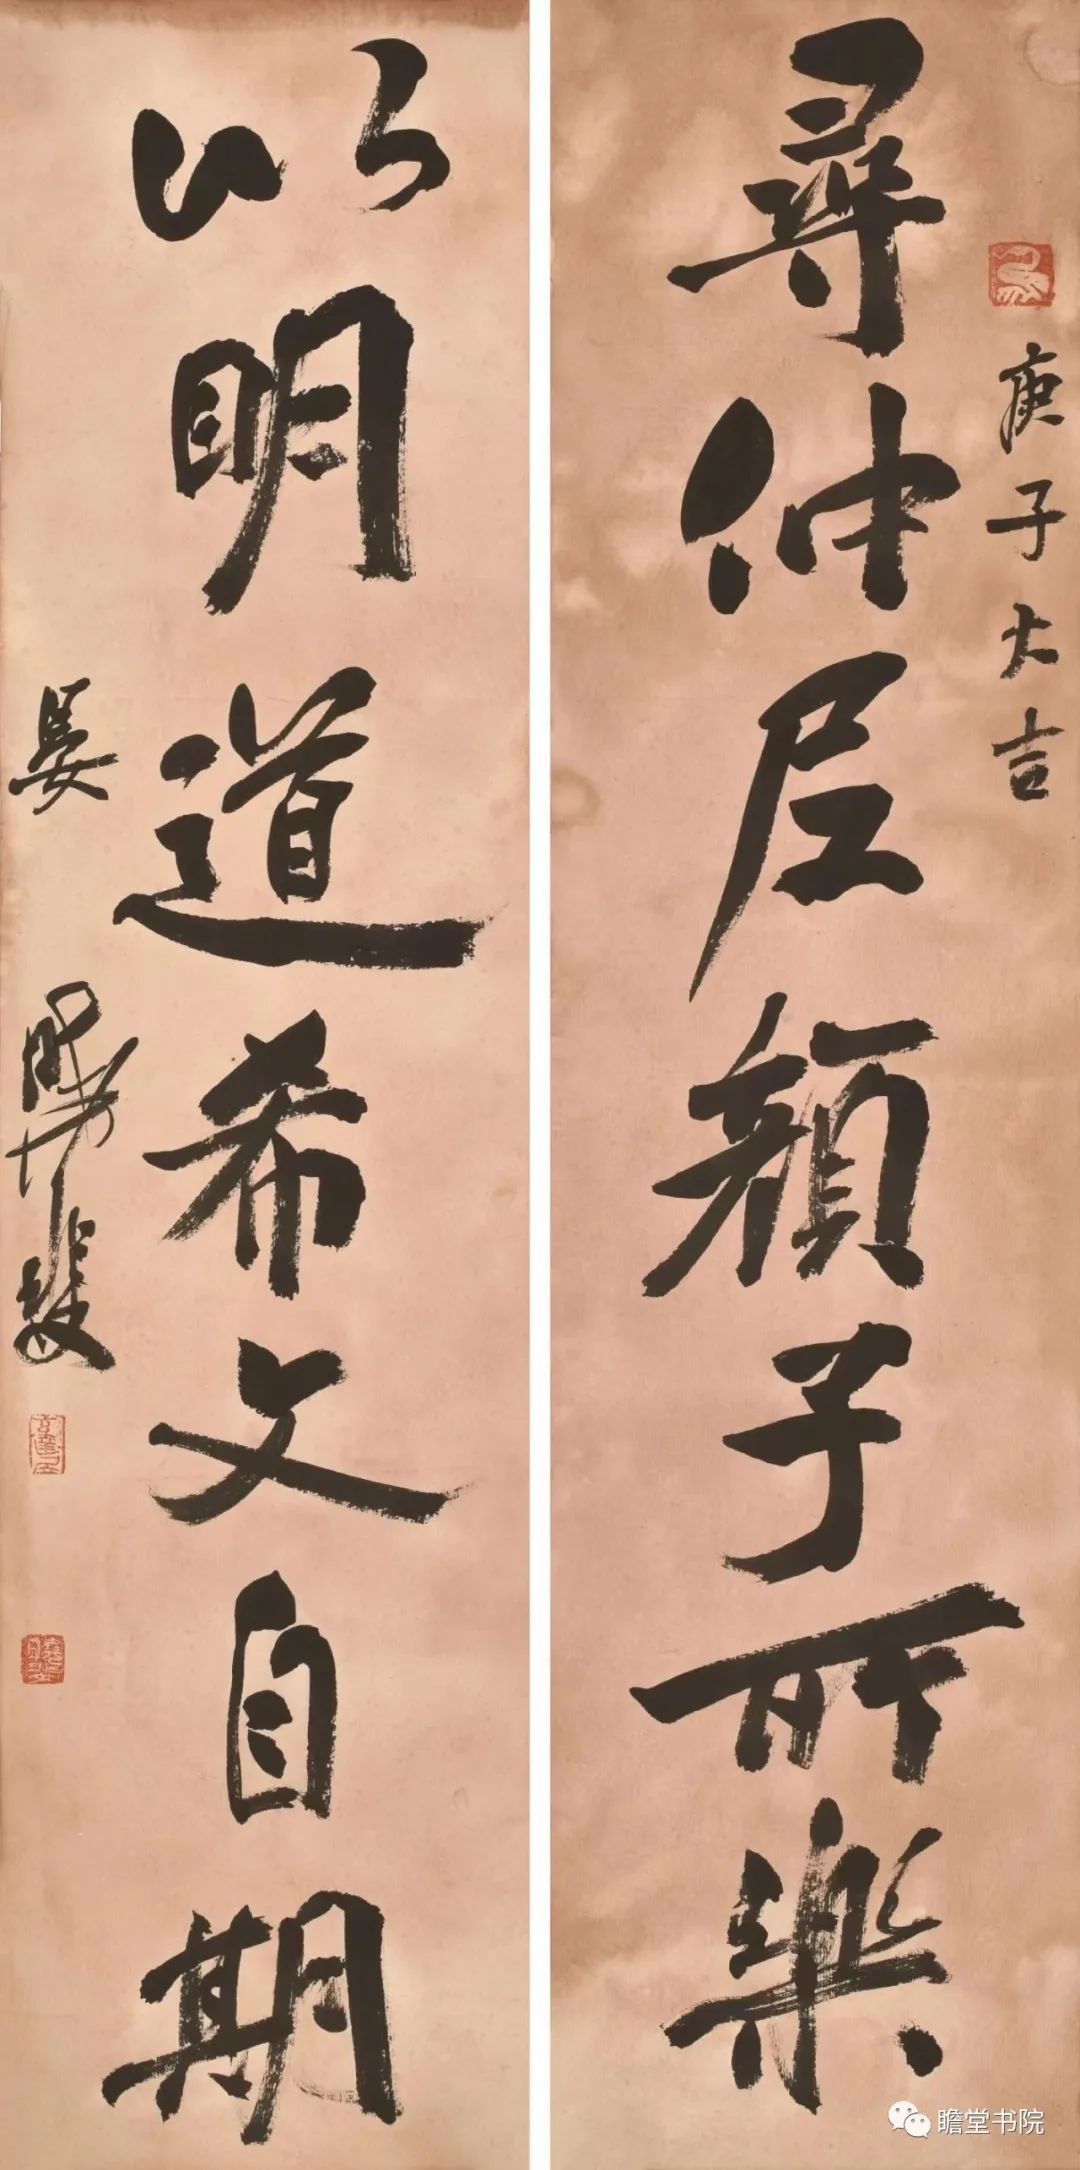 庚子大吉
尋仲尼顏子所樂
以明道希文自期
晏
瞻堂书院